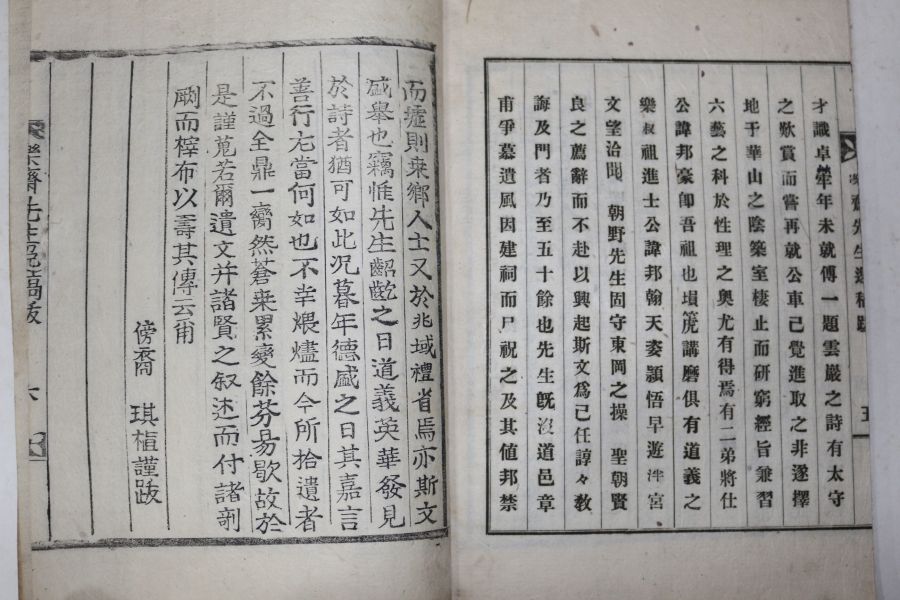 樂齋先生逸稿跋 五
才識卓犖年未就傅一題雲嚴之詩有太守
之歎賞而嘗再就公車已覺進取之非遂擇
地于華山之陰築室棲止而研窮經旨兼習
六藝之科於性理之奧尤有得焉有二弟將仕
公諱邦豪卽吾祖也塤箎講磨俱有道義之
樂叔祖進士公諱邦翰天姿穎悟早遊泮宮
文望洽聞 朝野先生固守東岡之操 聖朝賢
良之薦辭而不赴以興起斯文爲己任諄々敎
誨及門者乃至五十餘也先生旣沒道邑章
甫爭慕遺風因建祠而尸祝之及其値邦禁
而墟則衆鄕人士又於兆域禮省焉亦斯文
盛舉也竊惟先生齠齔之日道義英華發見
於詩者猶可如此况暮年德盛之日其嘉言
善行尤當何如也不幸煨燼而今所拾遺者
不過全鼎一臠然蒼桒累變餘芬易歇故於
是謹蒐若爾遺文并諸賢之叙述而付諸剞
劂而榟布以壽其傳云甭
傍裔 琪植謹跋
樂齋先生逸稿跋 六